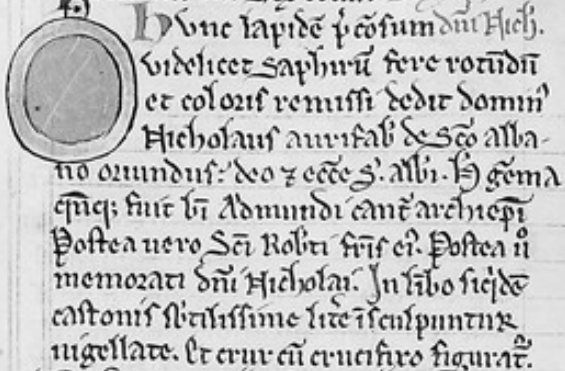 Hunc lapidē p̄ciosum dn̄i Nich.
videlicet Saphirū fere rotūdū
et coloris remissi dedit domin᾽
Nicholaus aurifab᾽ de Sc̄o alba-
no oriundus: deo ⁊ ecc̄e S. alb̄i. H̄ gēma
q̄ꝫ fuit b̄i Admundi cant᾽ archiep̄i
Postea uero Sc̄i Rob̄ti fr̄is ei᾽. Postea u͛o
memorati dn̄i Nicholai. In lībo siqͥdē
castonis sb᾽tilissime lit᾽e īsculpuntur
nigellate. Et crux cū crucifixo figurat᾽.